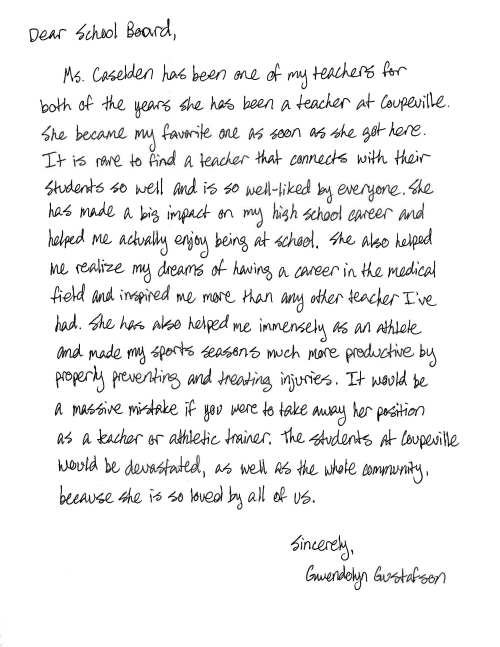 Dear School Board,
Ms. Caselden has been one of my teachers for
both of the years she has been a teacher at Coupeville.
She became my favorite one as soon as she got here.
It is rare to find a teacher that connects with their
students so well and is so well-liked by everyone. She
has made a big impact on my high school career and
helped me actually enjoy being at school. She also helped
me realize my dreams of having a career in the medical
field and inspired me more than any other teacher I've
had. She has also helped me immensely as an athlete
and made my sports seasons much more productive by
properly preventing and treating injuries. It would be
a massive mistake if you were to take away her position
as a teacher or athletic trainer. The students at Coupeville
would be devastated, as well as the whole community,
because she is so loved by all of us.
Sincerely,
Gwendolyn Gustafson